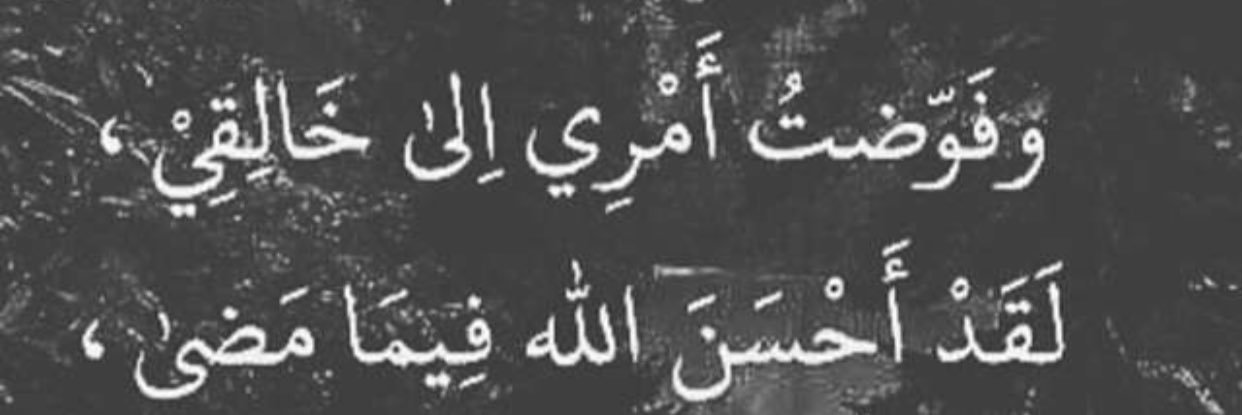 وفَوّضتُ أَمْرِي اِلىٰ خَالِقِيْ ،
لَقَدْ أَحْسَنَ الله فِيمَا مَضىٰ ،